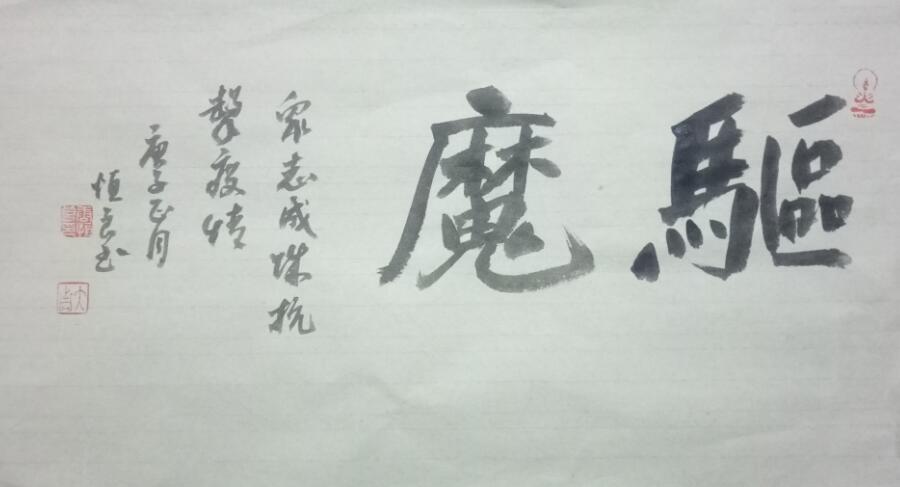 驅魔
眾志成城抗
擊疫情
庚子正月
恒